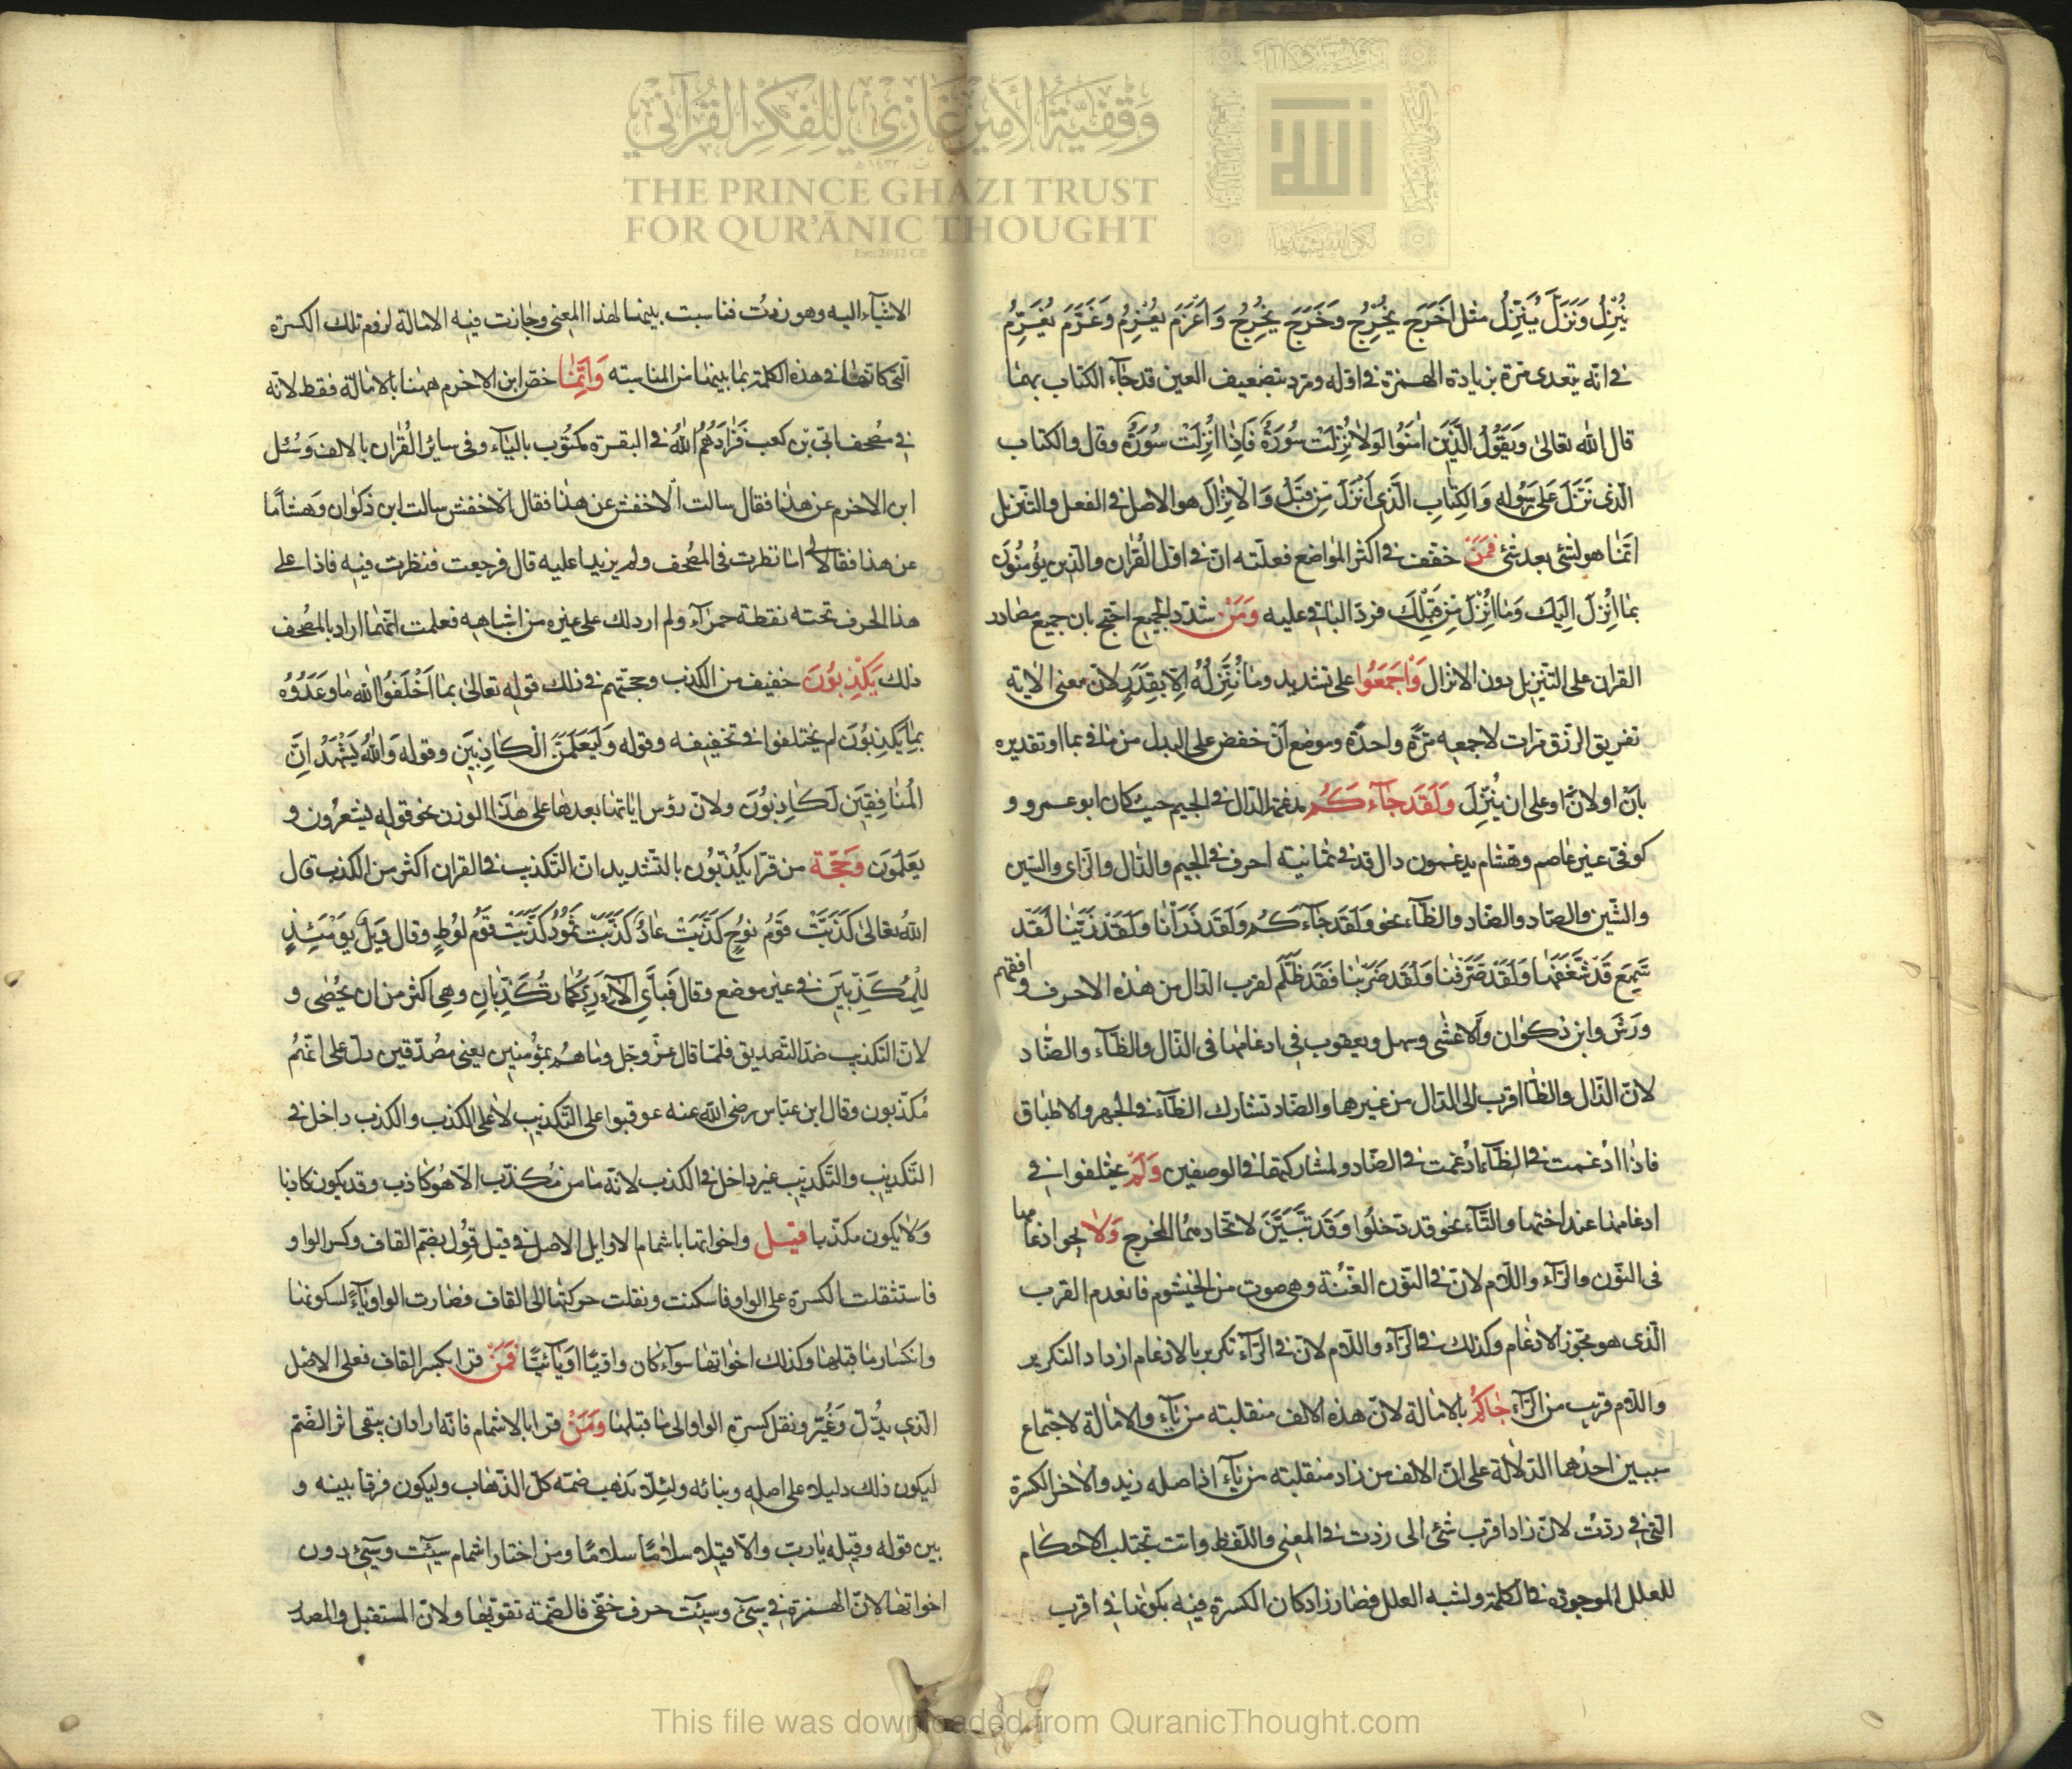 وقفية الأمير غازي للفكر القرآني
THE PRINCE GHAZI TRUST
FOR QUR'ĀNIC THOUGHT
يُنْزِلُ وَنَزَّلَ يُنَزِّلُ مثل اَخْرَجَ يُخْرِجُ وَخَرَّجَ يُخَرِّجُ وَاَغْرَمَ يُغْرِمُ وَغَرَّمَ يُغَرِّمُ
فى انه يتعدى مرة بزيادة الهمزة فى اوله ومرة بتضعيف العين قد جآء الكتاب بهما
قال الله تعالى وَيَقُولُ الَّذِينَ اٰمَنُوا لَولَا نُزِّلَتْ سُورَةٌ فَاِذَا اُنْزِلَتْ سُورَةٌ وقال والكتاب
الّذى نَزَّلَ عَلَى رَسُولِهِ وَالكِتَابِ الَّذِى اَنْزَلَ مِنْ قَبْلُ وَالْاِنْزَالُ هو الاصل فى الفعل والتنزيل
انّما هو لشئ بعد شئ فَمَنْ خفّف فى اكثر المواضع فعلّته انّ فى اول القُرآن والّذين يؤمنُونَ
بمَا اُنْزِلَ اِلَيكَ وَمَا اُنْزِلَ مِن قَبْلِكَ فردّ الباقى عليه وَمَنْ شدّد الجميع احتج بان جميع مصادر
القران على التنزيل دون الانزال وَاَجمَعُوا على تشديد وما نُنَزِّلُهُ اِلَّا بِقَدَرٍ لانّ معنى الاية
تفريق الرزق مرات لا جمعه مَرَّةً واحدَةً وموضع اَنْ خفض على البدل من مَا فى بما او تقديره
بانْ او لِانْ او على ان يُنَزِّلَ وَلَقَد جَآءَكُم مدغمة الدّال فى الجيم حيث كان ابو عمرو و
كوفى غير عاصم وهشام يدغمون دال قد فى ثمانية احرف فى الجيم والذال والزاى والسّين
والشّين والصّاد والضّاد والظّآء نحو وَلَقَد جَآءَكُم وَلَقَد ذَرَأنَا وَلَقَد زَيَّنَّا لَقَد
سَمِعَ قَد شَغَفَهَا وَلَقَد صَرَّفنَا وَلَقَد ضَرَبنَا فَقَد ظَلَمَ لقرب الدّال من هذه الاحرف وافقهم
ورش وابن ذكوان والاعشى وسهل ويعقوب فى ادغامها فى الذّال والظّآء والضّاد
لانّ الذّال والظّا اقرب الى الدّال من غيرهما والضّاد تشارك الظّآء فى الجهر والاطباق
فاذا ادُغمت فى الظّآء ادُغمت فى الضّاد ولمشاركتها فى الوصفين وَلَمْ يختلفوا فى
ادغامها عند اختها والتّآء نحو قد دخلُوا وَقَد تَّبَيَّنَ لاتحادهما المخرج وَلَا يجوز ادغامها
فى النّون والرّآء واللّام لانّ فى النّون الغُنَّة وهى صوت من الخيشوم فانعدم القرب
الّذى هو مجوّز الادغام وكذلك فى الرّآء واللّام لانّ فى الرّآء تكرير بالادغام ازداد التكرير
واللّام قريب من الرّآء جَآءَكُمْ بالامالة لانّ هذه الالف منقلبة من يآء والامالة لاجتماع
سببين احدُهما الدّلالة على انّ الالف من زاد منقلبة من يآء اذ اصله زيد والاخر الكسرة
الّتى فى زدتُ لانّ زاد اقرب شئ الى زدت فى المعنى واللّفظ وانت تجتلب الاحكام
للعلل الموجودة فى الكلمة ولشبه العلل فصار زاد كان الكسرة فيه بكونها فى اقرب
الاشيآء اليه وهو زدتُ فناسبت بينهما لهذا المعنى وجازت فيه الامالة لوقوع تلك الكسرة
الّتى كانها فى هذه الكلمة بما بينهما من المناسبة وَاِنَّمَا خصّ ابن الاخرم ههنا بالامالة فقط لانّه
فى مصُحف ابّى بن كعب فَزَادَهُمُ اللهُ فى البقرة مكتُوب باليآء وفى ساير القُرآن بالالف وَسُئل
ابن الاخرم عن هذا فقال سالت الاخفش عن هذا فقال الاخفش سالت ابن ذكوان وَهشامًا
عن هذا فقالا لى انا نظرت فى المصُحف ولم يزيدا عليه قال فرجعت فنظرت فيه فاذا على
هذا الحرف تحته نقطة حمرآء ولم ار ذلك على غيره من اشباهه فعلمت انّهما ارادا بالمصُحف
ذلك يَكذِبُونَ خفيف من الكذب وحجّتهم فى ذلك قوله تعالى بمَا اَخْلَفُوا الله ما وعَدُوُه
بِمَا يَكذِبُونَ لم يختلفوا فى تخفيفه وقوله وَلَيَعلَمَنَّ الْكَاذِبِينَ وقوله وَاللهُ يَشْهَدُ اِنَّ
المُنَافِقِينَ لَكَاذِبُونَ ولانّ رؤس ايات ما بعدها على هٰذا الوزن نحو قوله يشعُرون و
يَعلَمُونَ وَحُجّة من قرأ يُكَذِّبُون بالتّشديد انّ التّكذيب فى القران اكثر من الكذب قال
اللهُ تعالى كَذَّبَتْ قَومُ نُوحٍ كَذَّبَتْ عَادٌ كَذَّبَتْ ثَمُودُ كَذَّبَتْ قَوْمُ لوُطٍ وقال وَيلٌ يَومَئِذٍ
لِلْمُكَذِّبِينَ فى غير موضع وقال فَبِاَىِّ اٰلَآءِ رَبِّكُمَا تُكَذِّبَانِ وهى اكثر من ان تحُصٰى و
لانّ التّكذيب ضدّ التّصديق فلمّا قال عزّ وجلّ وما هُم بمؤمنين يعنى مصُدّقين دلّ على انّهُم
مُكذّبون وقال ابن عبّاس رضى اللّه عنه عوقبوا على التّكذيب لا على الكذب والكذب داخل فى
التّكذيب والتّكذيب غير داخل فى الكذب لانّه ما من مُكذّب الّا هُو كاذب وقد يكون كاذبا
وَلا يكون مكذّبا قيل واخواتها باشمام الاوايل الاصل فى قيل قُوِلَ بضمّ القاف وكسر الواو
فاستثقلت الكسرة على الواو فاسكنت ونقلت حركتها الى القاف فصارت الواو يآءً لسكونها
وانكسار ما قبلها وكذلك اخواتها سوآء كان واويًّا او يآئيًّا فَمَنْ قرا بكسر القاف فعلى الاصل
الّذى بُدّل وَغُيّر ونقل كسرة الواو الى ما قبلها وَمَنْ قرا بالاشمام فانّه اراد ان يبقى اثر الضّم
ليكون ذلك دليلا على اصله وبنائه ولئلّا تذهب ضمّة كلّ الذّهاب وليكون فرقا بينه و
بين قوله وقيله يا ربّ والّا قيلا سلامًا سلامًا ومن اختار اشمام سيئت وسيئ دون
اخواتها لانّ الهمزة فى سيئ وسيئت حرف خفّى فالضّمّة تقوّيها ولانّ المستقبل والمصدر
This file was downloaded from QuranicThought.com